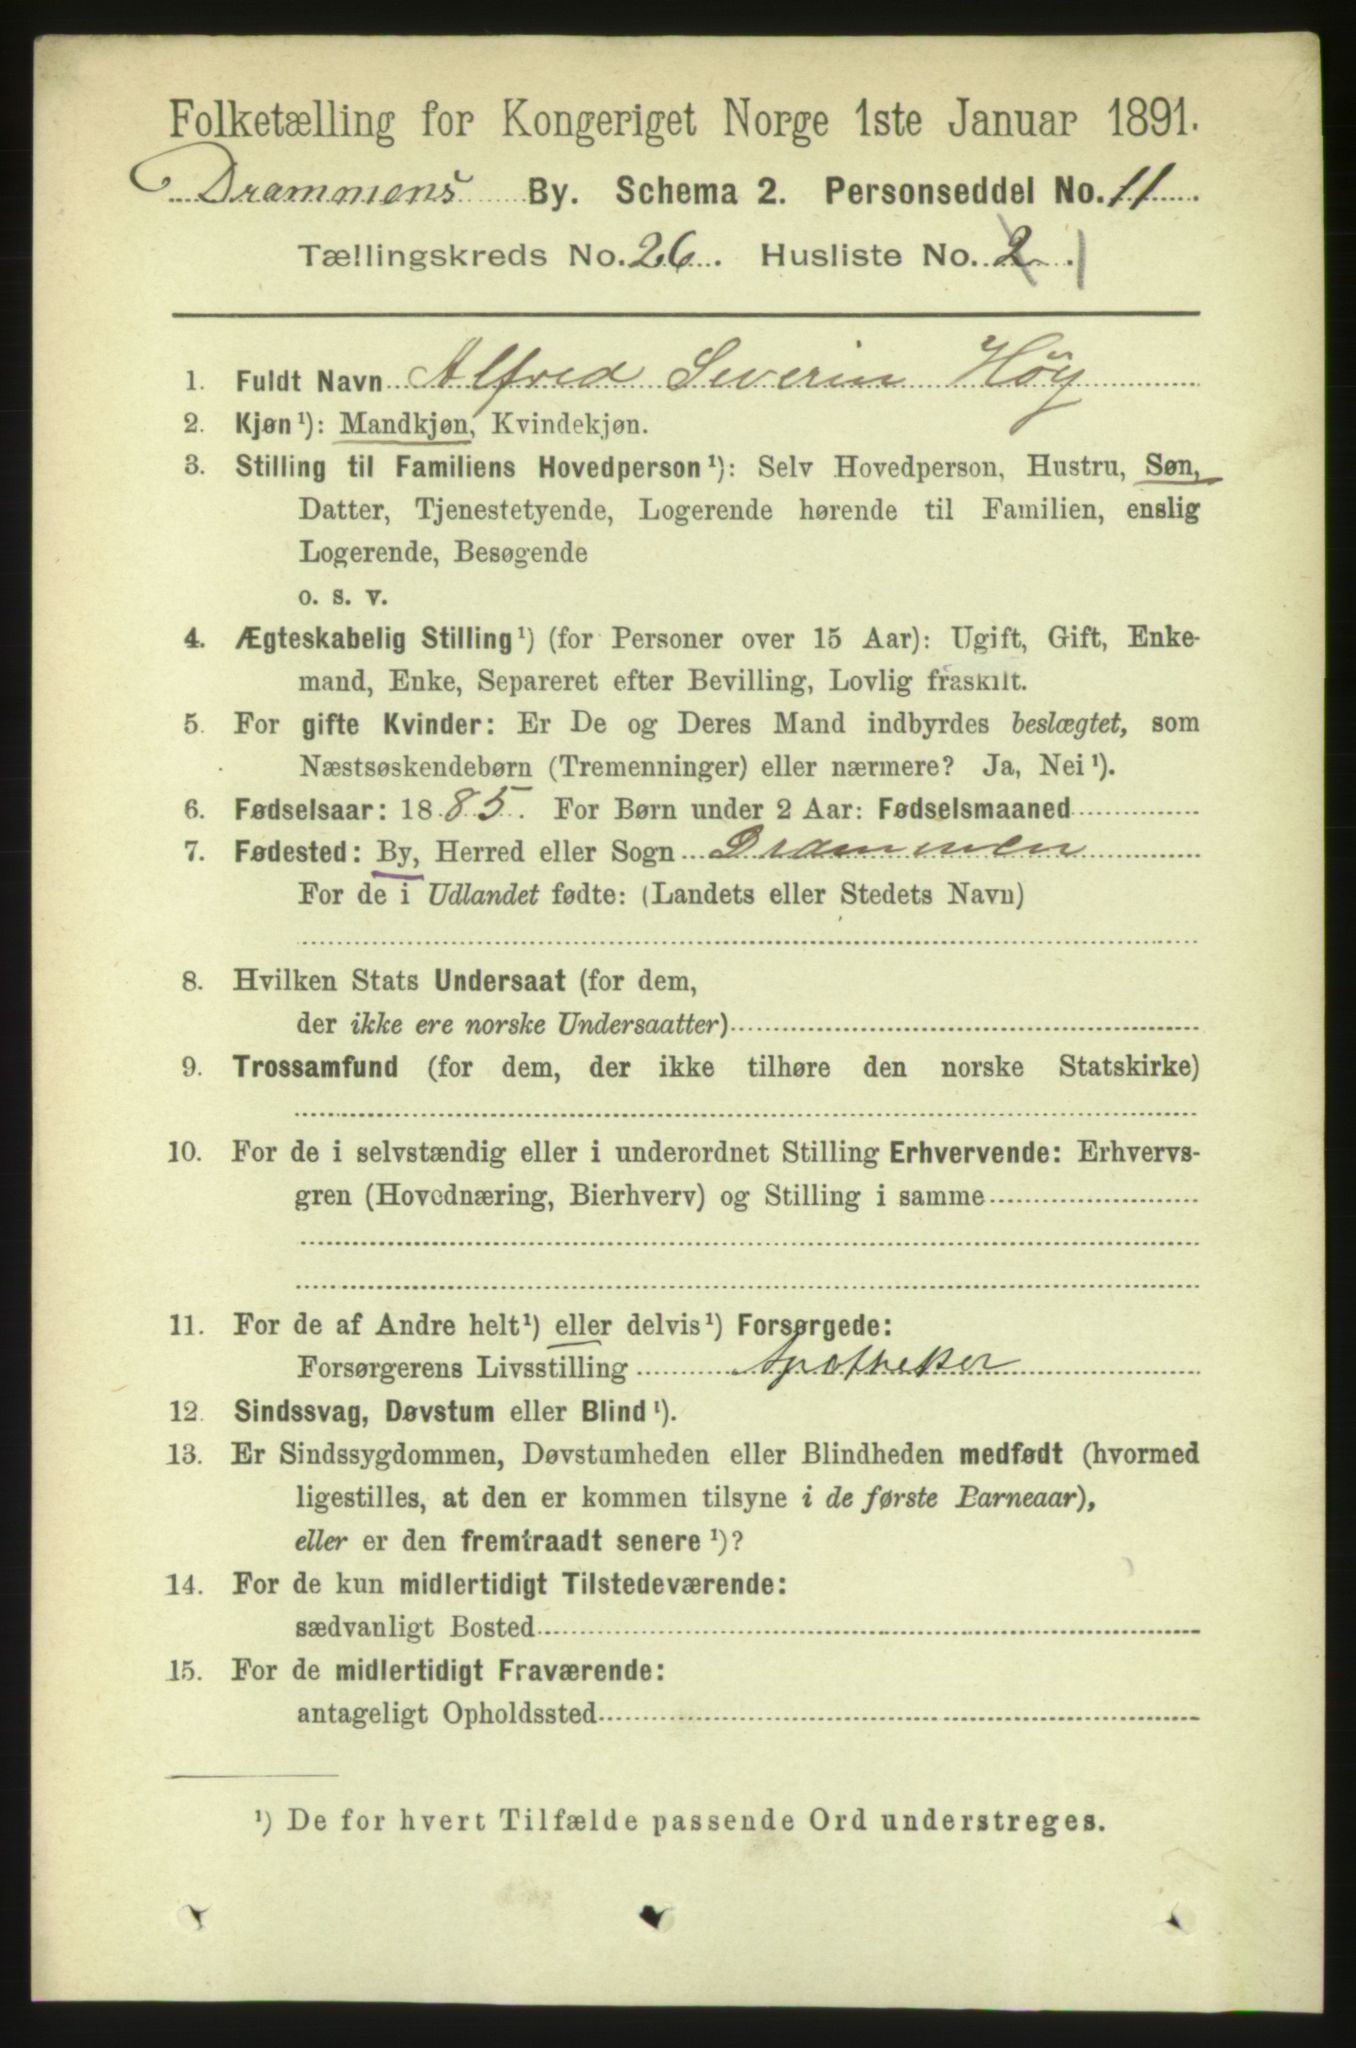 Folketælling for Kongeriget Norge 1ste Januar 1891.
Drammens By. Schema 2. Personseddel No. 11.
Tællingskreds No. 26. Husliste No. 2. 1
1. Fuldt Navn Alfred Severin Höy
2. Kjøn¹): Mandkjøn, Kvindekjøn.
3. Stilling til Familiens Hovedperson¹): Selv Hovedperson, Hustru, Søn,
Datter, Tjenestetyende, Logerende hørende til Familien, enslig
Logerende, Besøgende
o. s. v.
4. Ægteskabelig Stilling¹) (for Personer over 15 Aar): Ugift, Gift, Enke-
mand, Enke, Separeret efter Bevilling, Lovlig fraskilt.
5. For gifte Kvinder: Er De og Deres Mand indbyrdes beslægtet, som
Næstsøskendebørn (Tremenninger) eller nærmere? Ja, Nei¹).
6. Fødselsaar: 1885. For Børn under 2 Aar: Fødselsmaaned
7. Fødested: By, Herred eller Sogn Drammen
For de i Udlandet fødte: (Landets eller Stedets Navn)
8. Hvilken Stats Undersaat (for dem,
der ikke ere norske Undersaatter)
9. Trossamfund (for dem, der ikke tilhøre den norske Statskirke)
10. For de i selvstændig eller i underordnet Stilling Erhvervende: Erhvervs-
gren (Hovednæring, Bierhverv) og Stilling i samme
11. For de af Andre helt¹) eller delvis¹) Forsørgede:
Forsørgerens Livsstilling Apotheker
12. Sindssvag, Døvstum eller Blind¹).
13. Er Sindssygdommen, Døvstumheden eller Blindheden medfødt (hvormed
ligestilles, at den er kommen tilsyne i de første Barneaar),
eller er den fremtraadt senere¹)?
14. For de kun midlertidigt Tilstedeværende:
sædvanligt Bosted
15. For de midlertidigt Fraværende:
antageligt Opholdssted
¹) De for hvert Tilfælde passende Ord understreges.